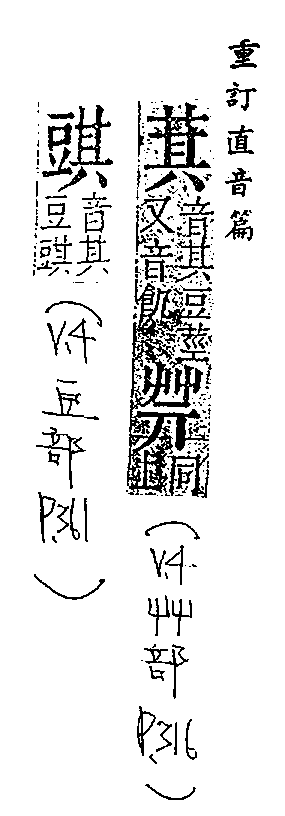 重訂直音篇
萁 音其豆莖
又音飢 䒑丌 上同
(V.4 艸部 P.316)
䜺 音其
豆䜺
(V.4 豆部 P.361)